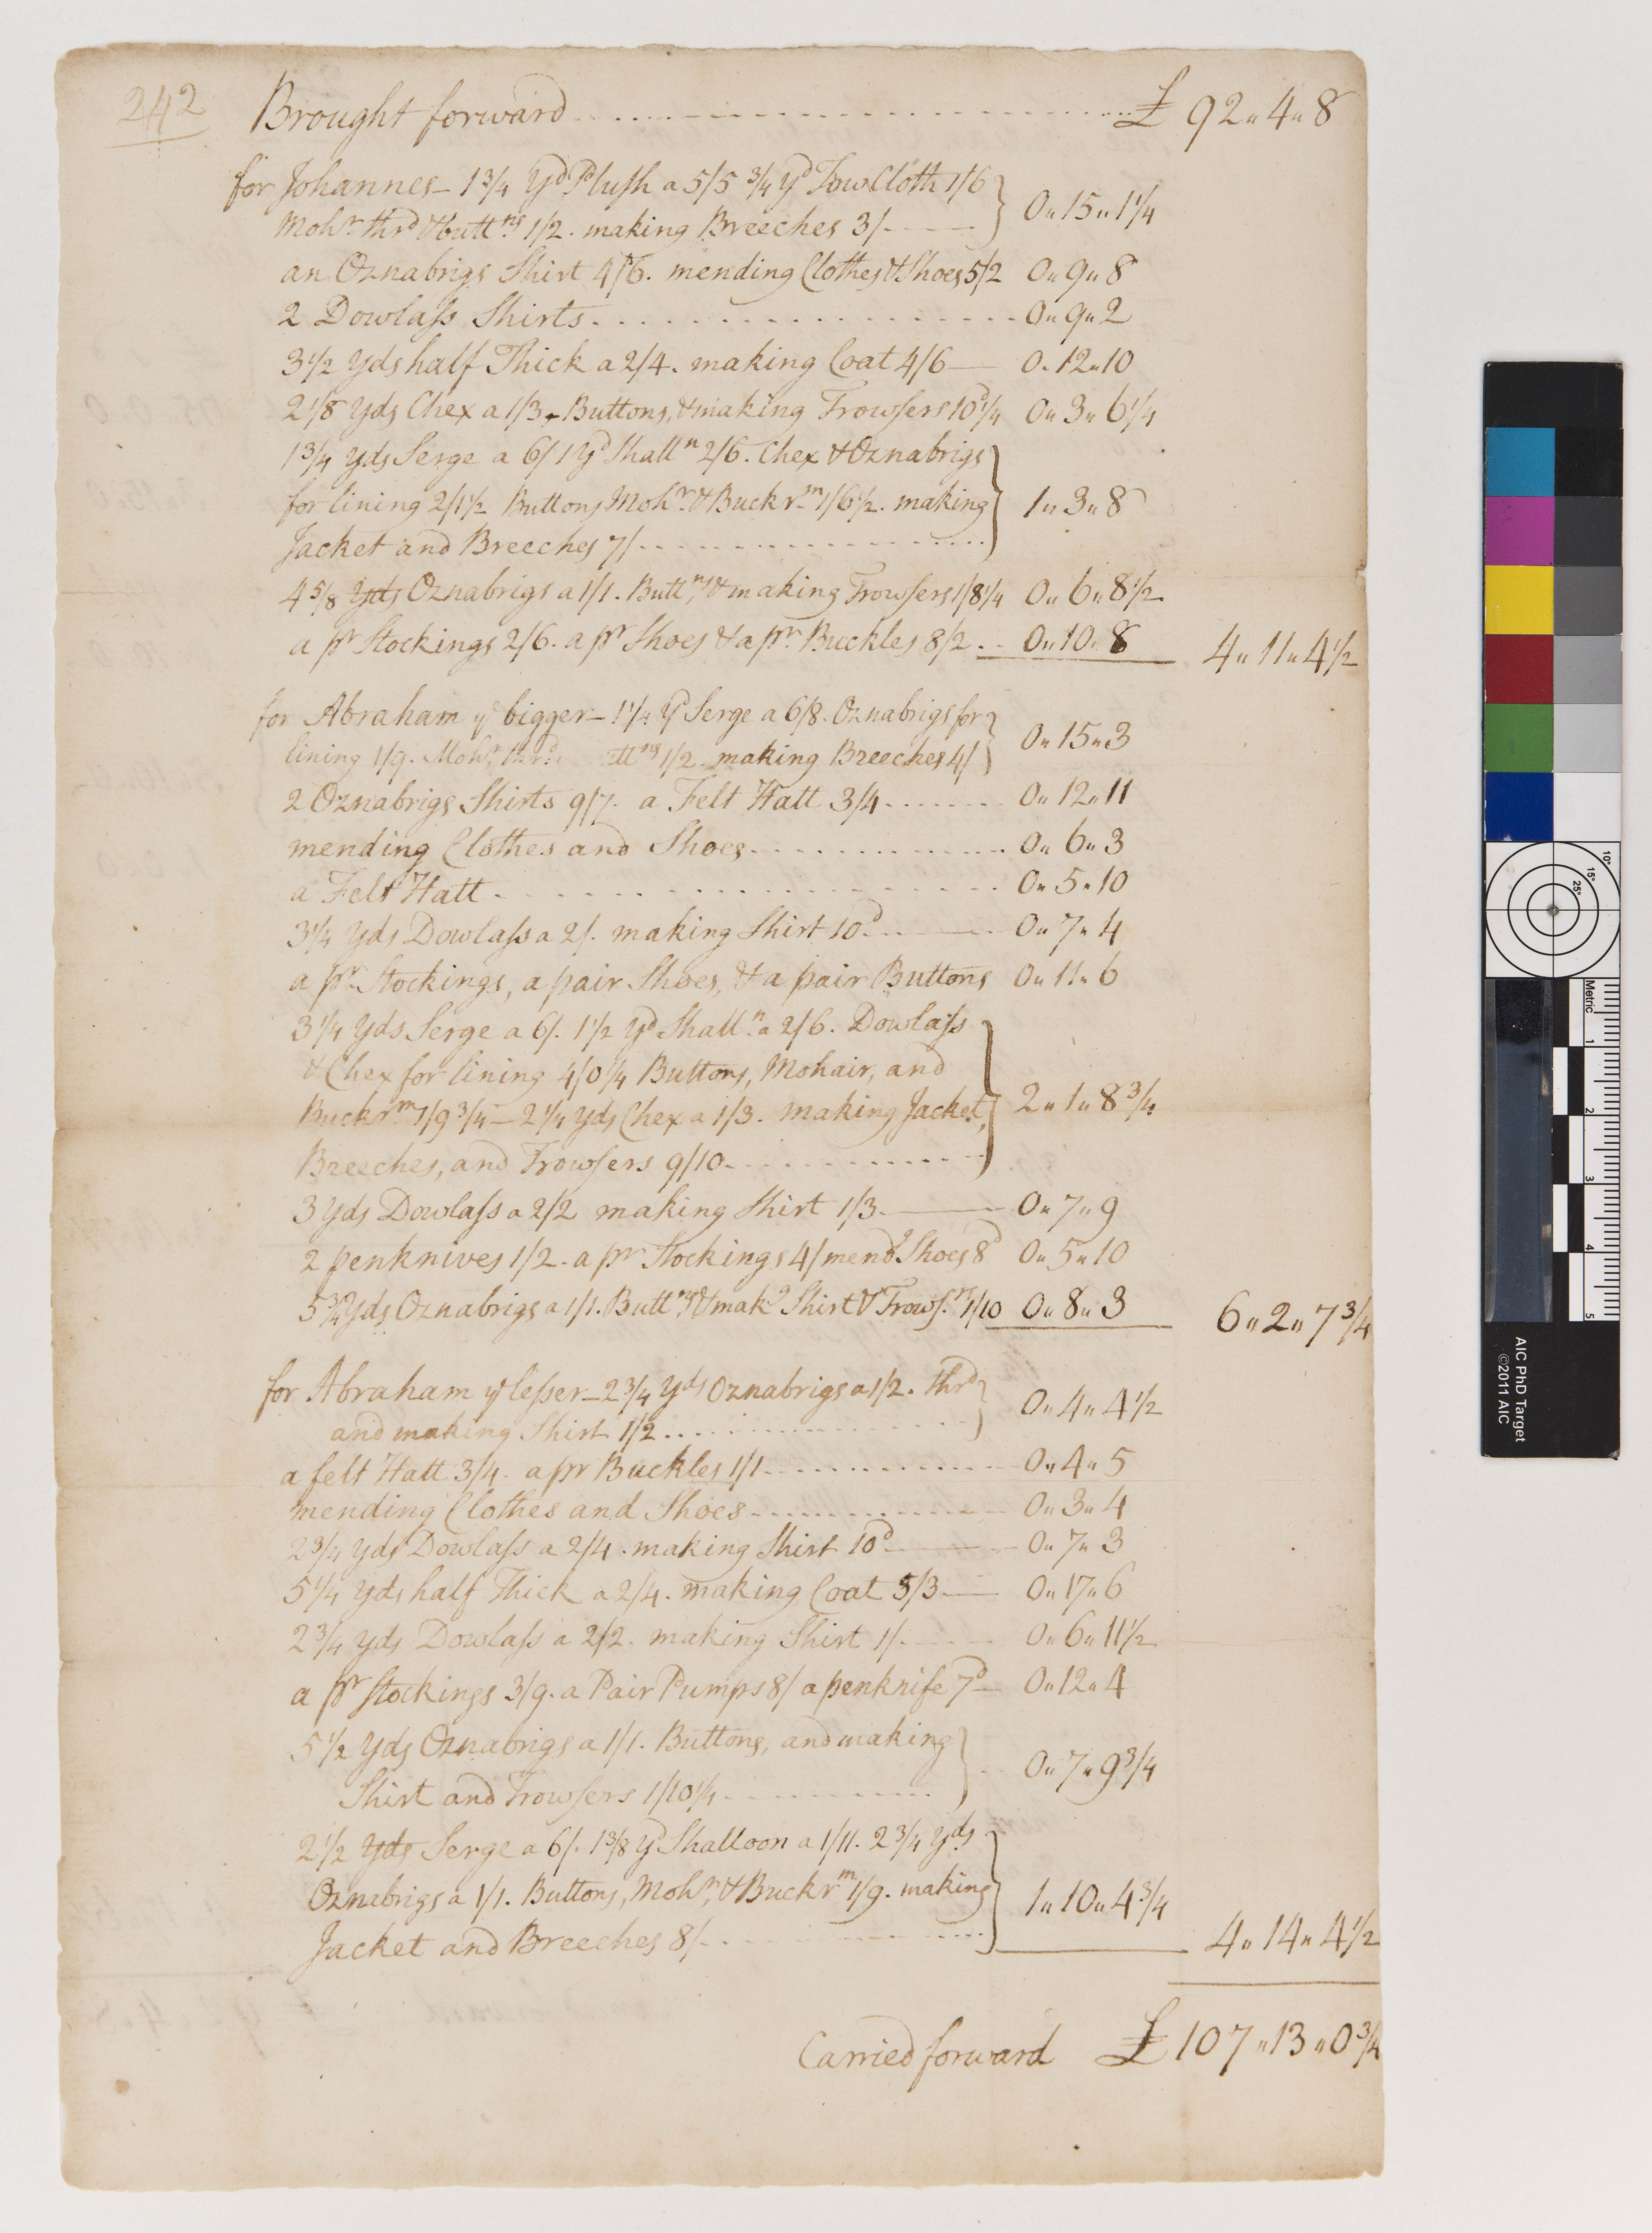 242
Brought forward £ 92 " 4 " 8
for Johannes - 1 3/4 Yd Plush a 5/5 3/4 yd Tow Cloth 1/6
Mohr. thrd & buttns 1/2. making Breeches 3/ 0 " 15 " 1 1/4
an Oznabrigs Shirt 4/6. mending Clothes & Shoes 5/2 0 " 9 " 8
2 Dowlass Shirts 0 " 9 " 2
3 1/2 Yds half Thick a 2/4. making Coat 4/6 0 . 12 " 10
2 1/8 Yds Chex a 1/3 - Buttons, & making Trowsers 10d 1/4 0 " 3 " 6 1/4
1 3/4 Yds Serge a 6/ 1 yd Shalln 2/6. Chex & Oznabrigs
for lining 2/1 1/2 Buttons Mohr. & Buckrm 1/6 1/2. making 1 " 3 " 8
Jacket and Breeches 7/
4 5/8 Yds Oznabrigs a 1/1. Buttns, & making Trowsers 1/8 1/4 0 " 6 " 8 1/2
a pr Stockings 2/6. a pr Shoes & a pr. Buckles 8/2 0 " 10 " 8 4 " 11 " 4 1/2
for Abraham ye bigger - 1 1/4 Yd Serge a 6/8. Oznabrigs for
lining 1/9. Mohr. thrd ttns 1/2. making Breeches 4/ 0 " 15 " 3
2 Oznabrigs Shirts 9/7. a Felt Hatt 3/4 0 " 12 " 11
mending Clothes and Shoes 0 " 6 " 3
a Felt Hatt 0 " 5 " 10
3 1/4 Yds Dowlass a 2/. making Shirt 10d 0 " 7 " 4
a pr. Stockings, a pair Shoes, & a pair Buttons 0 " 11 " 6
3 1/4 Yds Serge a 6/. 1 1/2 Yd Shalln. a 2/6. Dowlass
& Chex for lining 4/0 1/4 Buttons, Mohair, and
Buckrm 1/9 3/4 - 2 1/4 yds Chex a 1/3. making Jacket, 2 " 1 " 8 3/4
Breeches, and Trowsers 9/10
3 Yds Dowlass a 2/2 making Shirt 1/3 0 " 7 " 9
2 penknives 1/2. a pr. Stockings 4/ mendg Shoes 8d 0 " 5 " 10
5 3/4 Yds Oznabrigs a 1/1. Buttns, & makg Shirt & Trowsrs 1/10 0 " 8 " 3 6 " 2 " 7 3/4
for Abraham ye lesser - 2 3/4 Yds Oznabrigs a 1/2. thrd
and making Shirt 1/2 0 " 4 " 4 1/2
a felt Hatt 3/4. a pr Buckles 1/1 0 " 4 " 5
mending Clothes and Shoes 0 " 3 " 4
2 3/4 yds Dowlass a 2/4. making Shirt 10d 0 " 7 " 3
5 1/4 Yds half Thick a 2/4. making Coat 5/3 0 " 17 " 6
2 3/4 yds Dowlass a 2/2. making Shirt 1/. 0 " 6 " 11 1/2
a pr Stockings 3/9. a Pair Pumps 8/ a penknife 7d 0 " 12 " 4
5 1/2 Yds Oznabrigs a 1/1. Buttons, and making
Shirt and Trowsers 1/10 1/4 0 " 7 " 9 3/4
2 1/2 Yds Serge a 6/. 1 3/8 yd Shalloon a 1/11. 2 3/4 Yds
Oznabrigs a 1/1. Buttons, Mohr, & Buckrm 1/9. making 1 " 10 " 4 3/4
Jacket and Breeches 8/ 4 " 14 " 4 1/2
Carried forward £ 107 " 13 " 0 3/4
10°
15°
25°
Metric
1
2
3
4
5
AIC PhD Target
©2011 AIC